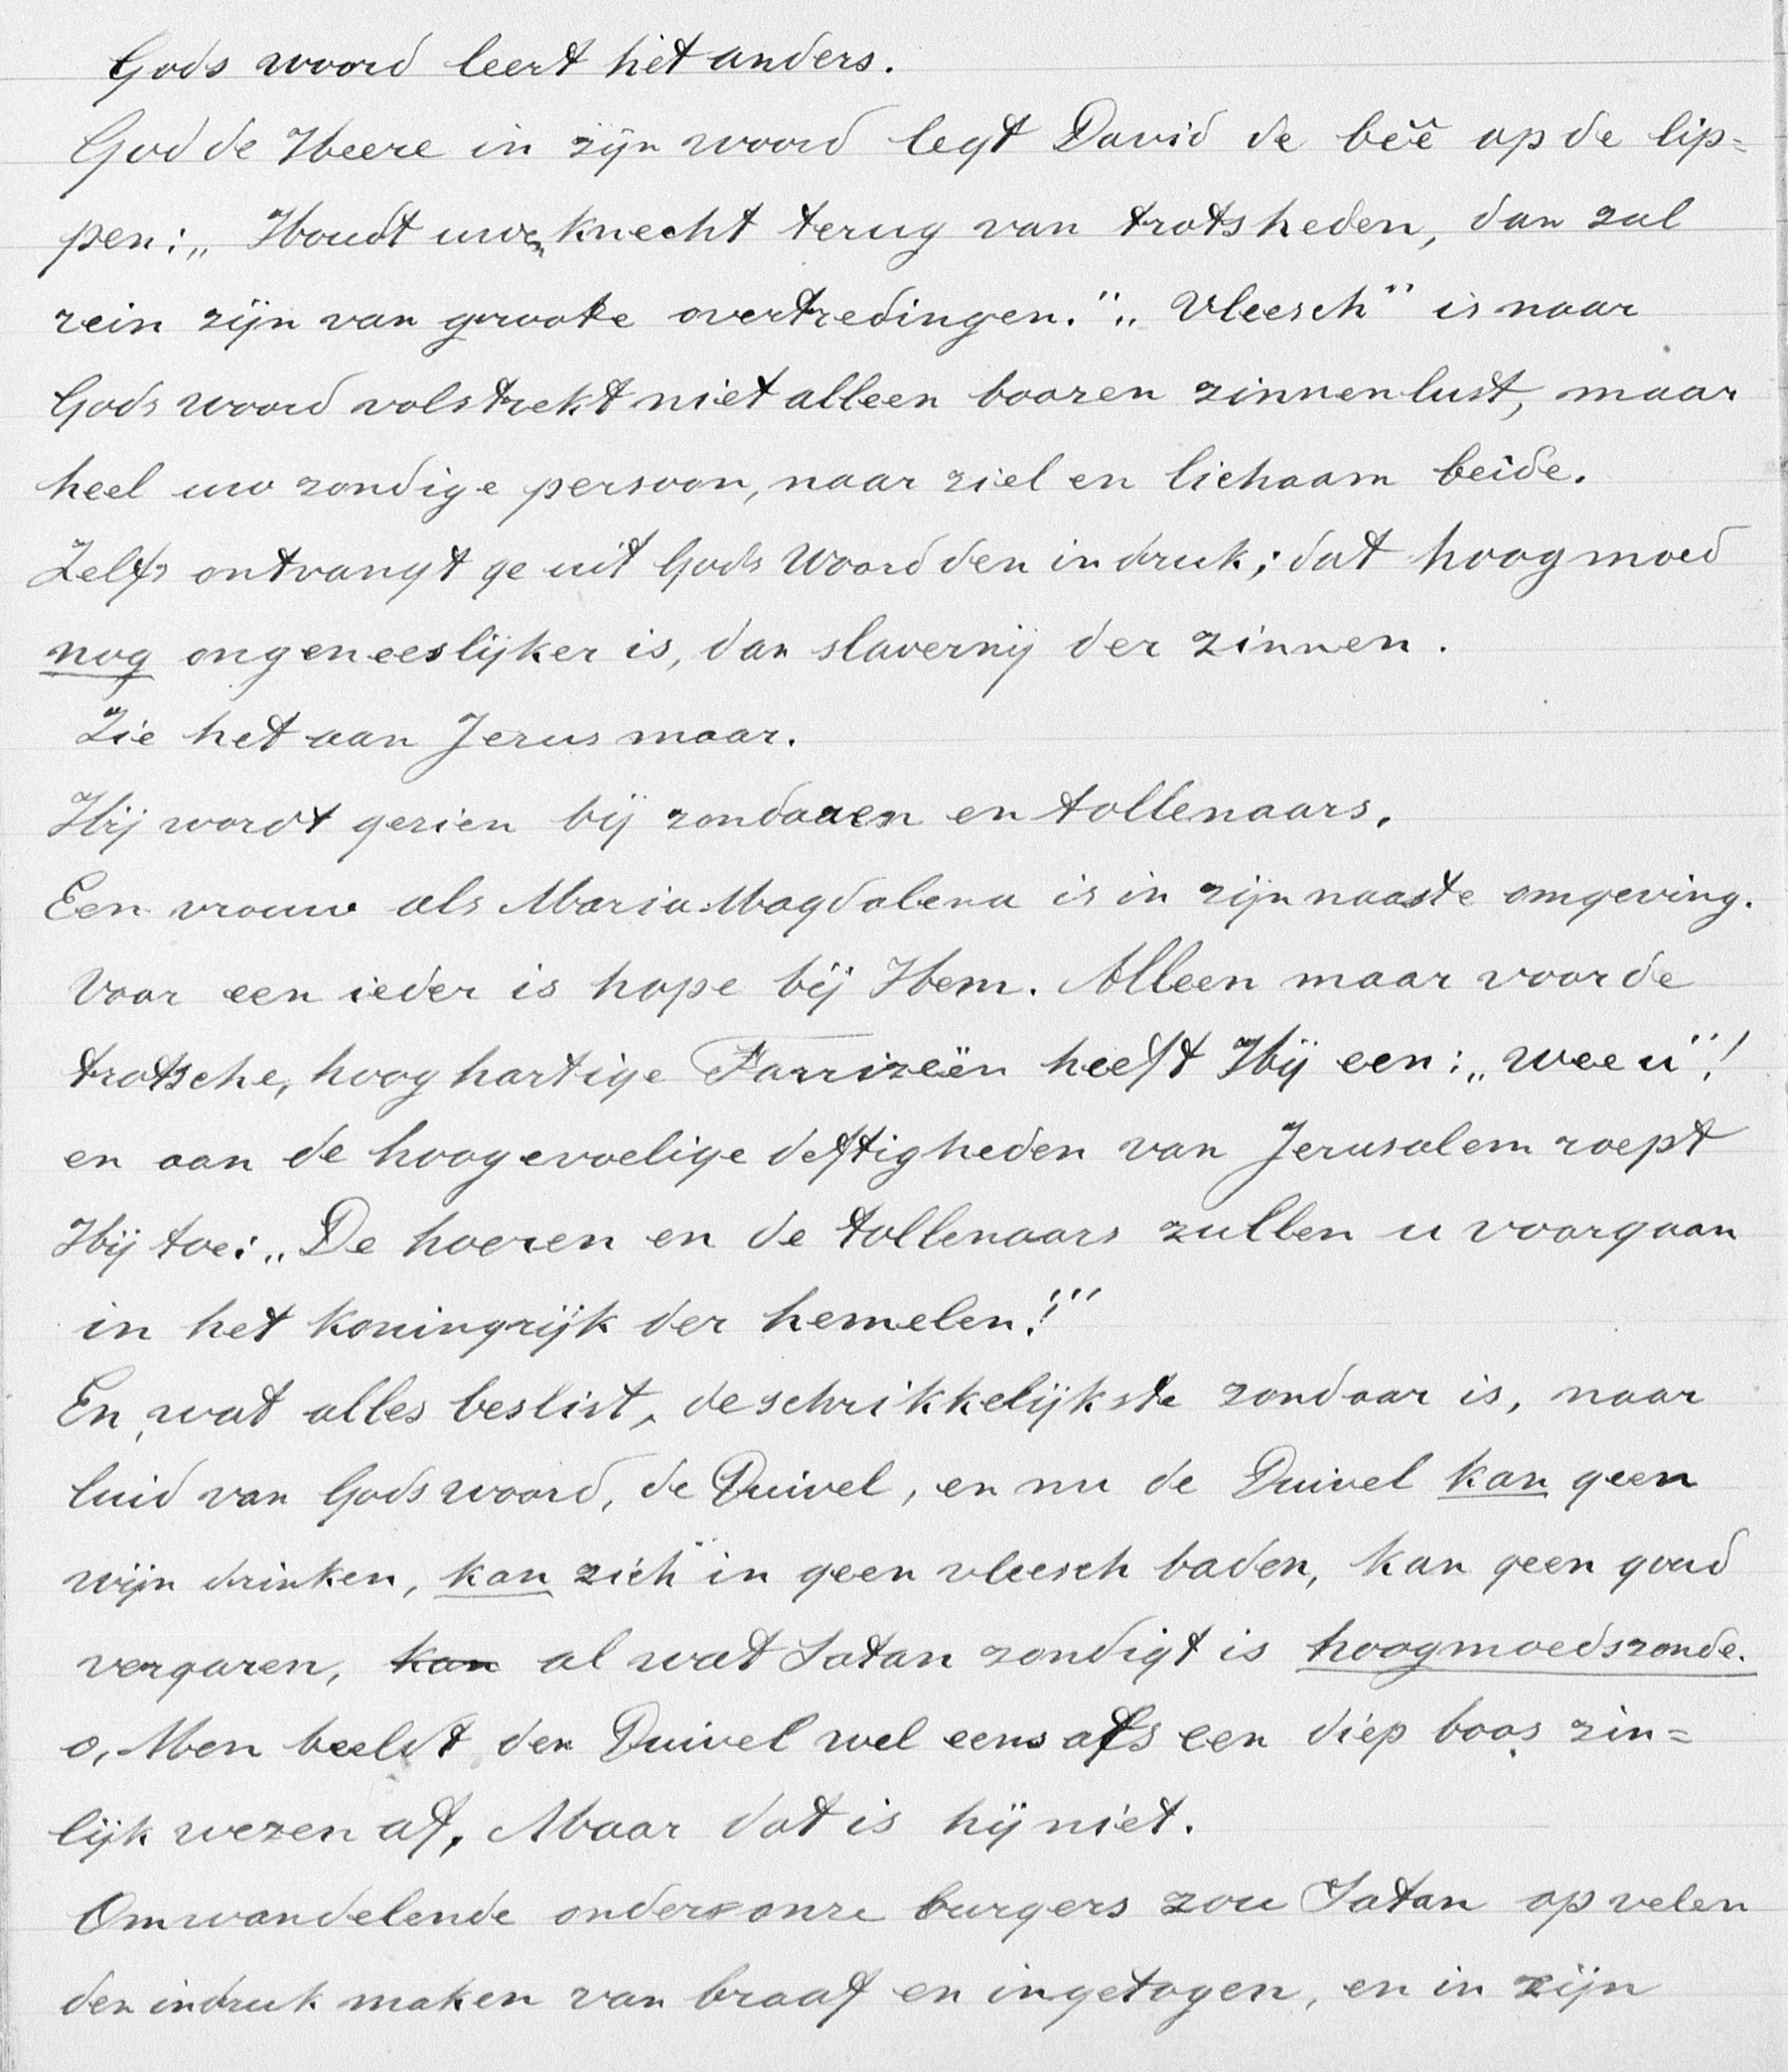 Gods woord leert het anders.
God de Heere in zijn woord legt David de beê op de lip=
pen: „Houdt uwen knecht terug van trotsheden, dan zal
rein zijn van groote overtredingen." „Vleesch" is naar
Gods woord volstrekt niet alleen boozen zinnenlust, maar
heel uw zondige persoon, naar ziel en lichaam beide.
Zelfs ontvangt ge uit Gods Woord den indruk; dat hoogmoed
nog ongeneeslijker is, dan slavernij der zinnen.
Zie het aan Jezus maar.
Hij wordt gezien bij zondaren en tollenaars.
Een vrouw als Maria Magdalena is in zijn naaste omgeving.
Voor een ieder is hope bij Hem. Alleen maar voor de
trotsche, hooghartige Farrizeën heeft Hij een: „wee u"!
en aan de hoogevoelige deftigheden van Jerusalem roept
Hij toe: „De hoeren en de tollenaars zullen u voorgaan
in het koningrijk der hemelen!"
En, wat alles beslist, de schrikkelijkste zondaar is, naar
luid van Gods woord, de Duivel, en nu de Duivel kan geen
wijn drinken, kan zich in geen vleesch baden, kan geen goud
vergaren, kan al wat Satan zondigt is hoogmoedszonde.
o, Men beeldt den Duivel wel eens als een diep boos zin=
lijk wezen af, Maar dat is hij niet.
Omwandelende onder onze burgers zou Satan op velen
den indruk maken van braaf en ingetogen, en in zijn